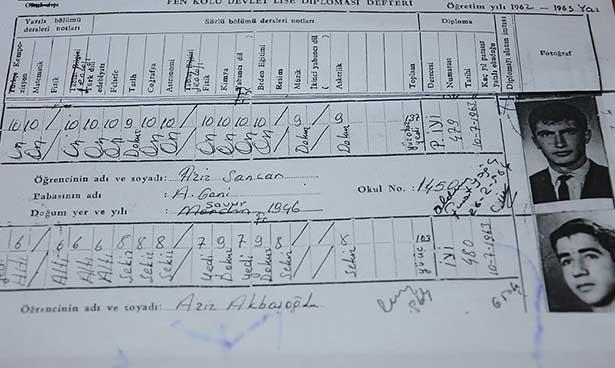 FEN KOLU DEVLET LİSE DİPLOMASI DEFTERİ Öğretim yılı 1962 - 1963 Yaz
Yazılı bölümü dersleri notları
Sözlü bölümü dersleri notları
Diploma
Fotoğraf
Kompozisyon
Matematik
Fizik
Türk dili edebiyatı
Felsefe
Tarih
Coğrafya
Astronomi
Fizik
Kimya
Yabancı dil
Beden Eğitimi
Resim
Müzik
İkinci yabancı dil
Askerlik
Toplam
Derecesi
Numarası
Tarihi
10 10 / 10 10 10 9 10 10 / 10 10 10 10 / 9 9
On On On On On On On On On On Dokuz Dokuz
P. İYİ
479
10-7-1963
Öğrencinin adı ve soyadı: Aziz Sancar
Babasının adı : A. Gani
Okul No. : 1450
Doğum yer ve yılı : Savur 1946
6 / 6 6 8 8 8 / 7 9 7 9 8 / 8
Altı Altı Altı Sekiz Sekiz Sekiz Yedi Dokuz Yedi Dokuz Sekiz Sekiz
103
İYİ
480
10-7-1963
Öğrencinin adı ve soyadı: Aziz Akbaşoğlu